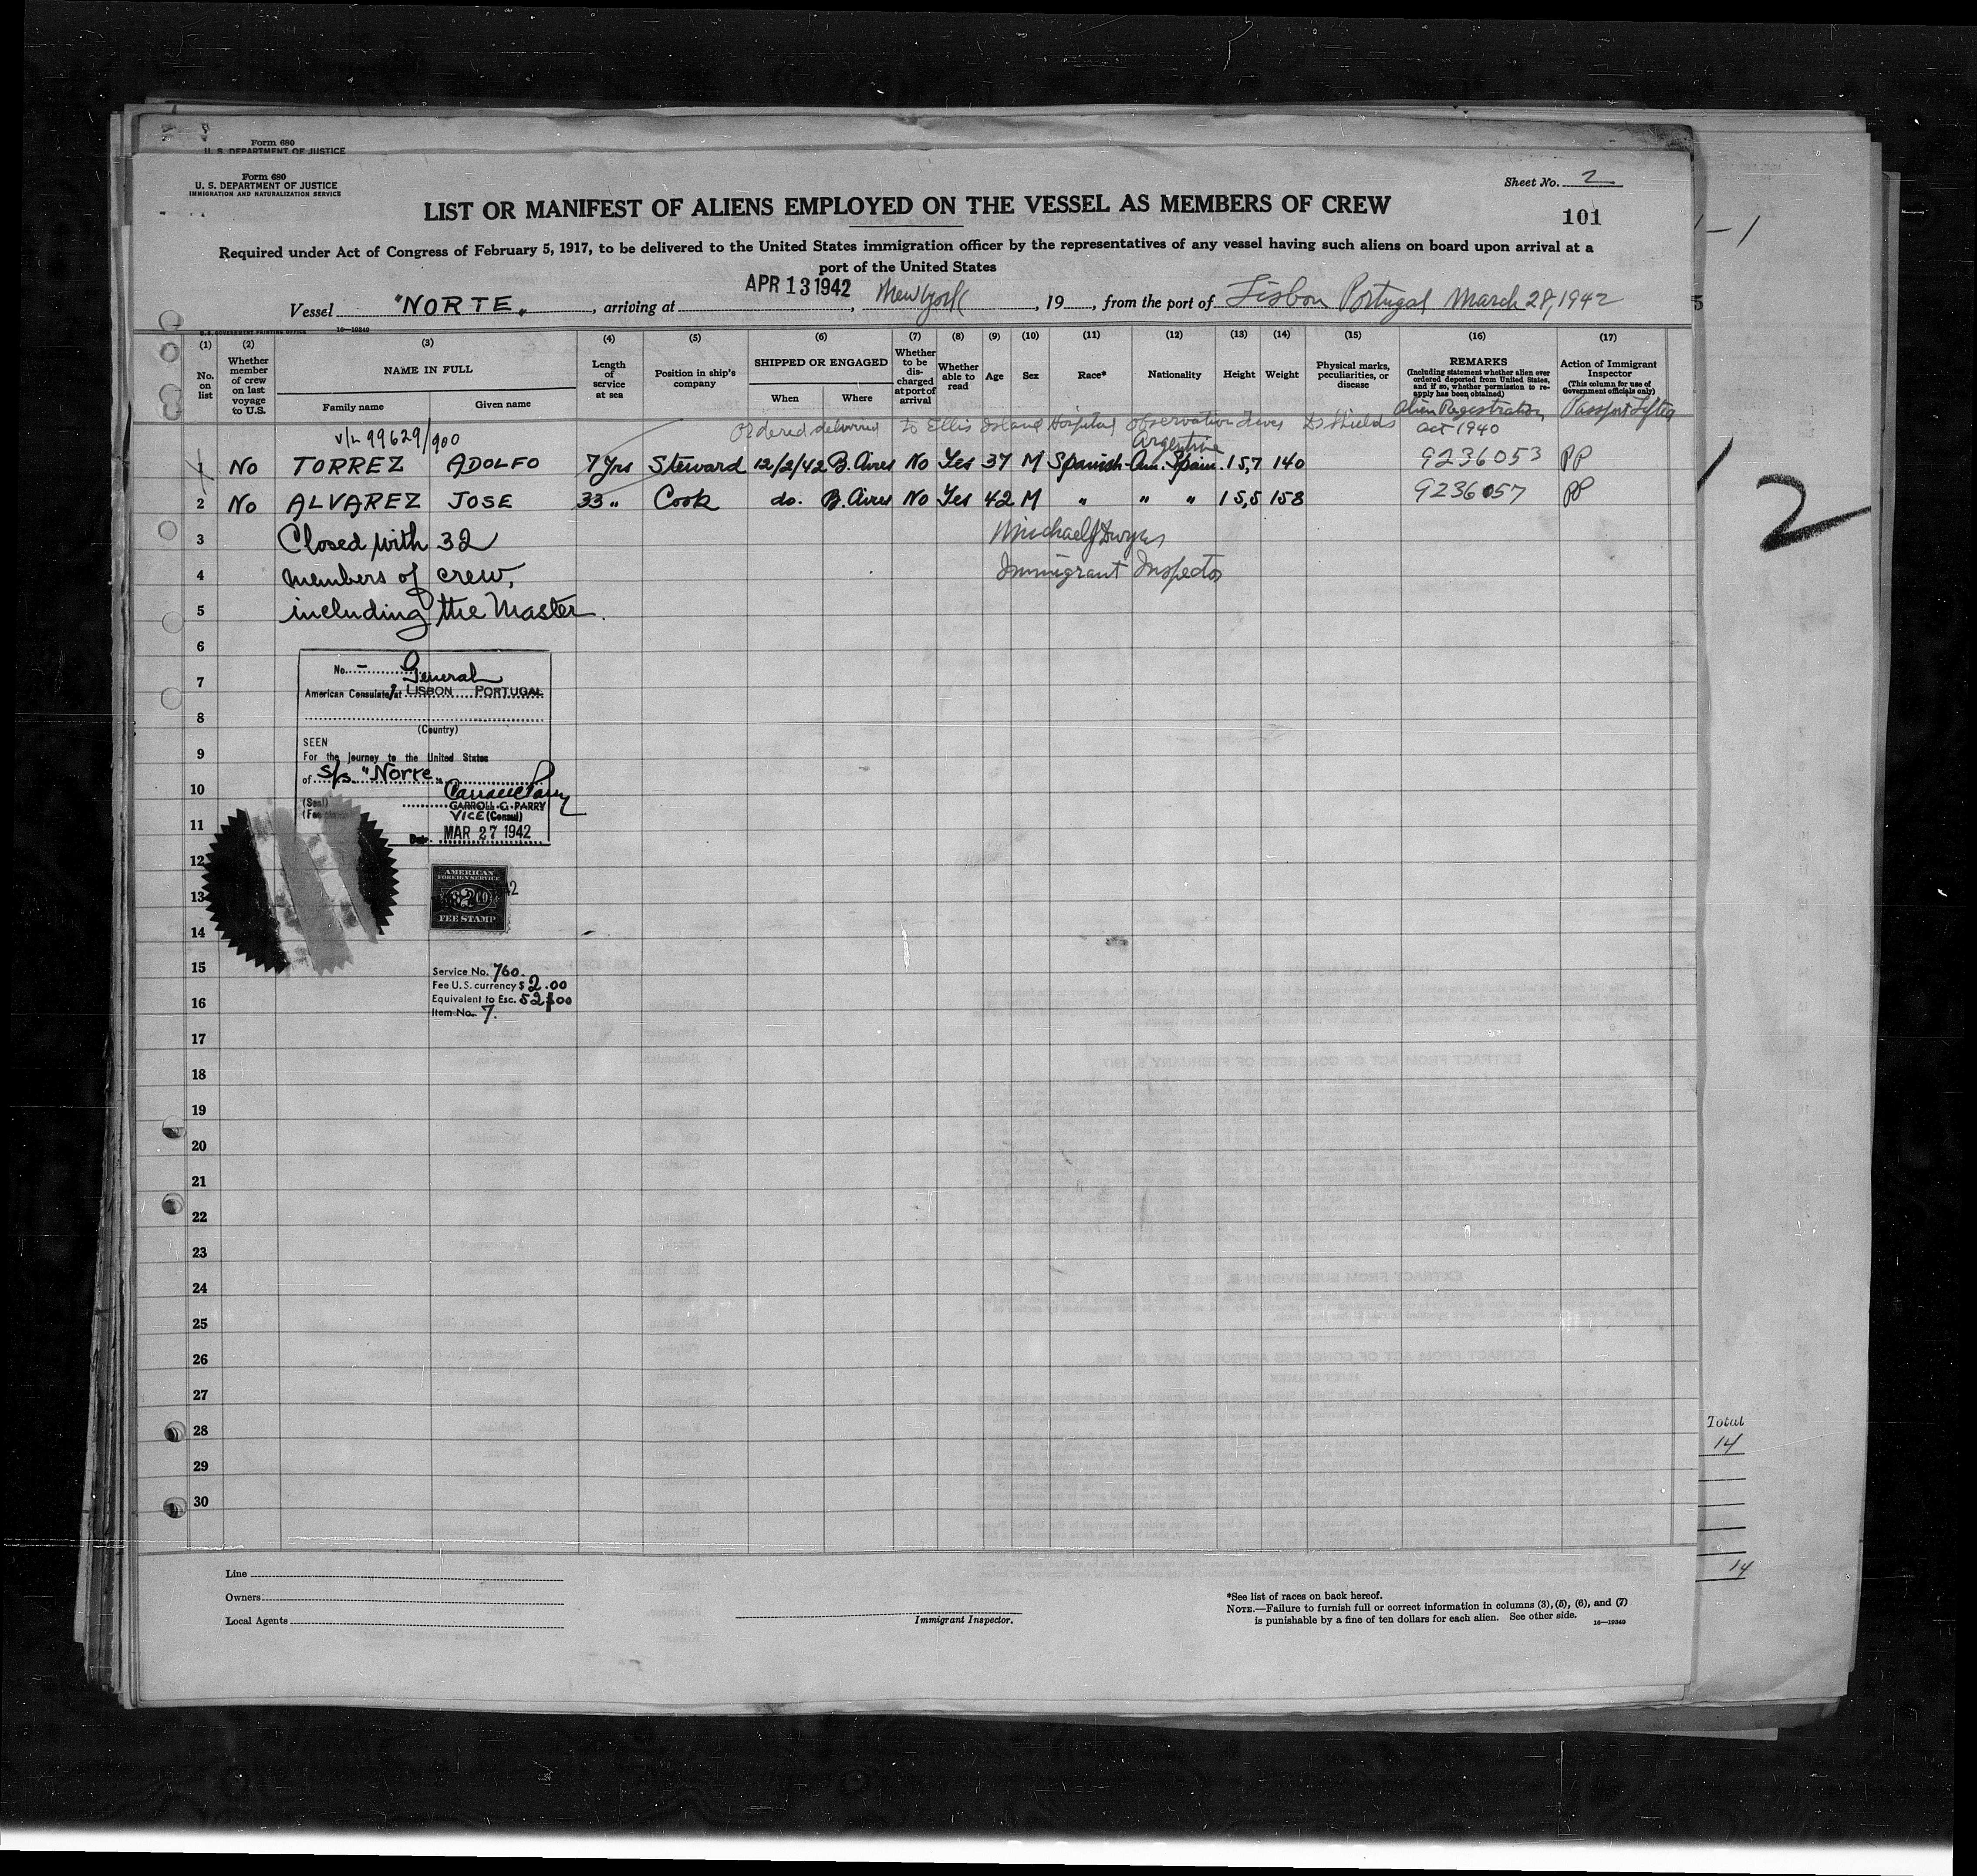 Form 680
U. S. DEPARTMENT OF JUSTICE
Form 680
U. S. DEPARTMENT OF JUSTICE
IMMIGRATION AND NATURALIZATION SERVICE
Sheet No. 2
LIST OR MANIFEST OF ALIENS EMPLOYED ON THE VESSEL AS MEMBERS OF CREW
101
Required under Act of Congress of February 5, 1917, to be delivered to the United States immigration officer by the representatives of any vessel having such aliens on board upon arrival at a
port of the United States
Vessel "NORTE", arriving at APR 13 1942, New York, 19, from the port of Lisbon Portugal March 28, 1942
U.S. GOVERNMENT PRINTING OFFICE 16—19349
(1) No. on list
(2) Whether member of crew on last voyage to U.S.
(3) NAME IN FULL
Family name Given name
(4) Length of service at sea
(5) Position in ship's company
(6) SHIPPED OR ENGAGED
When Where
(7) Whether to be discharged at port of arrival
(8) Whether able to read
(9) Age
(10) Sex
(11) Race*
(12) Nationality
(13) Height
(14) Weight
(15) Physical marks, peculiarities, or disease
(16) REMARKS (Including statement whether alien ever ordered deported from United States, and if so, whether permission to reapply has been obtained)
(17) Action of Immigrant Inspector (This column for use of Government officials only)
Alien Registration Act 1940 Passport Lifted
Ordered delivered to Ellis Island Hospital observation
v/L 99629/900
Argentine
1 No TORREZ ADOLFO 7 Yrs Steward 12/2/42 B. Aires No Yes 37 M Spanish-Am. Spain. 15,7 140 9236053 PP
2 No ALVAREZ JOSE 33 " Cook do. B. Aires No Yes 42 M " " " 15,5 158 9236057 PP
3 Closed with 32 Michael J Dwyer
4 members of crew, Immigrant Inspector
5 including the Master.
6
7
8
9
10
11
12
13
14
15
16
17
18
19
20
21
22
23
24
25
26
27
28
29
30
No. - General
American Consulate at LISBON PORTUGAL
(Country)
SEEN
For the journey to the United States
of s/s. "Norte"
(Seal)
GARROLL C. PARRY
VICE (Consul)
Date MAR 27 1942
AMERICAN
FOREIGN SERVICE
$2.00
FEE STAMP
Service No. 760.
Fee U.S. currency $ 2.00
Equivalent to Esc. 52$00
Item No. 7.
2
Total
14
14
Line
Owners
Local Agents
Immigrant Inspector.
*See list of races on back hereof.
NOTE.—Failure to furnish full or correct information in columns (3), (5), (6), and (7)
is punishable by a fine of ten dollars for each alien. See other side. 16—19349